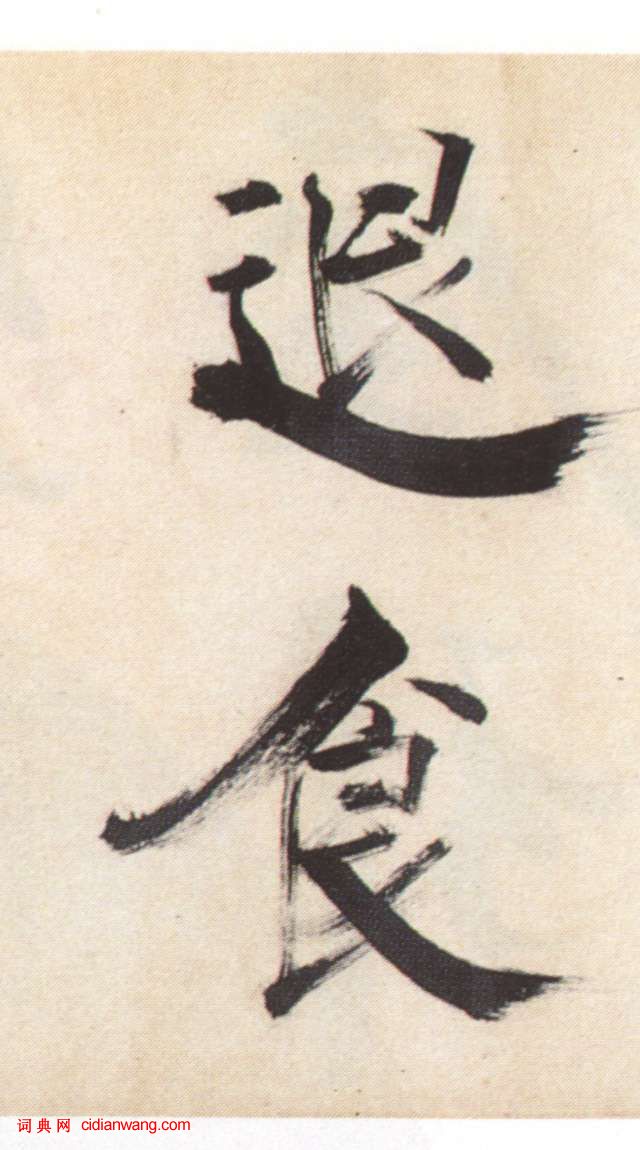 退
食
词典网 cidianwang.com